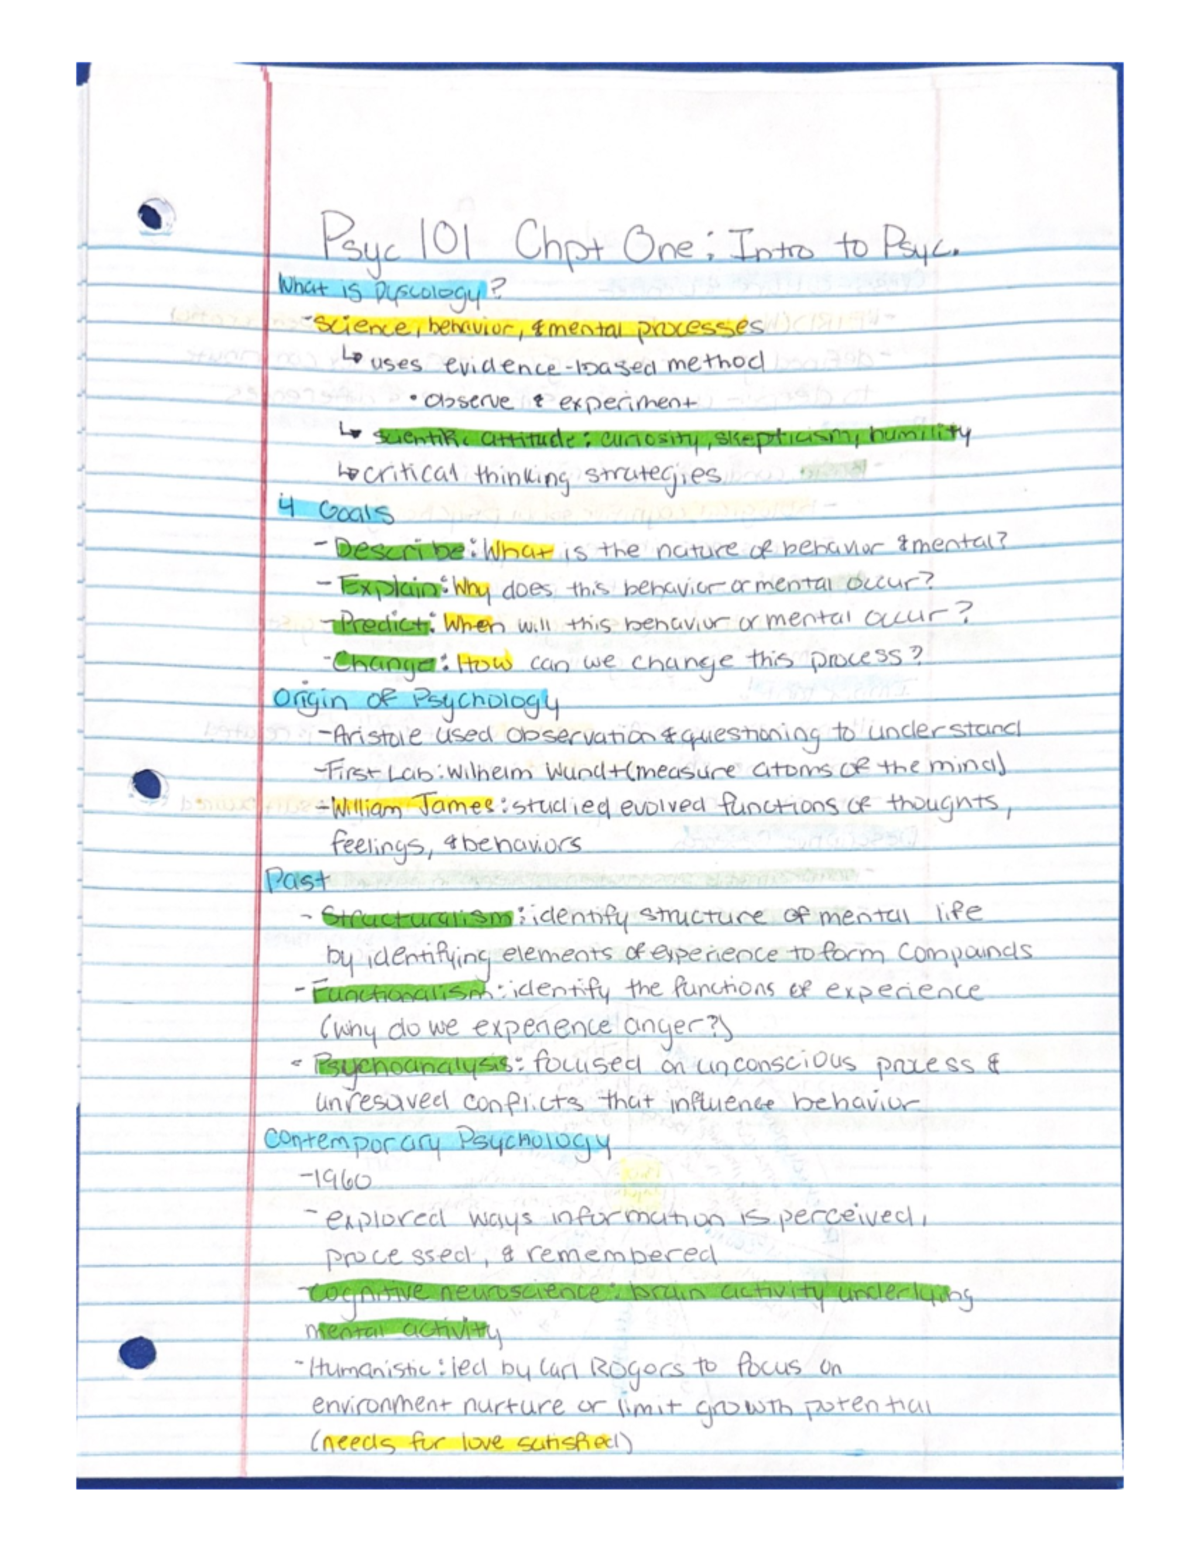 Psyc 101 Chpt One: Intro to Psyc.
What is Pyscology?
-Science, behavior, & mental processes
↳ uses evidence-based method
• observe & experiment
↳ scientific attitude: curiosity, skepticism, humility
↳ critical thinking strategies
4 Goals
- Describe: What is the nature of behavior & mental?
- Explain: Why does this behavior or mental occur?
- Predict: When will this behavior or mental occur?
- Change: How can we change this process?
Origin of Psychology
-Aristole used observation & questioning to understand
-First Lab: Wilhelm Wundt (measure atoms of the mind)
-William James: studied evolved functions of thoughts,
feelings, & behaviors
Past
- Structuralism: identify structure of mental life
by identifying elements of experience to form compounds
- Functionalism: identify the functions of experience
(why do we experience anger?)
- Psychoanalysis: focused on unconscious process &
unresolved conflicts that influence behavior
Contemporary Psychology
-1960
- explored ways information is perceived,
processed, & remembered
-Cognitive neuroscience: brain activity underlying
mental activity
-Humanistic: led by Carl Rogers to focus on
environment nurture or limit growth potential
(needs for love satisfied)